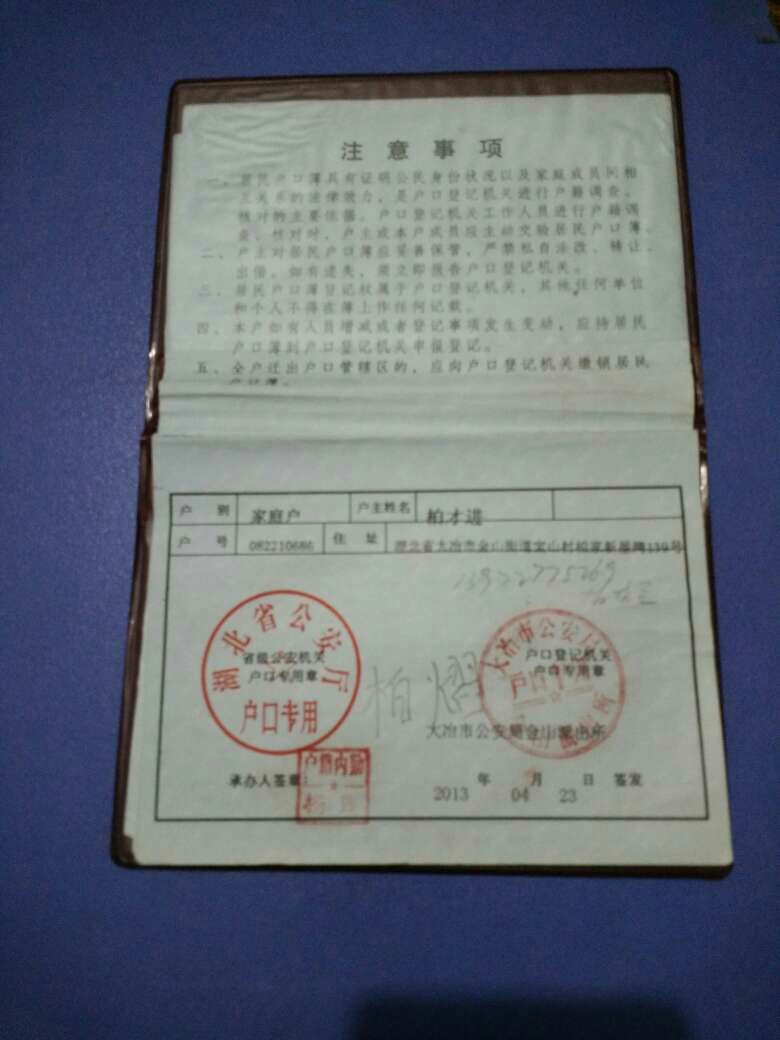 注意事项
一、居民户口簿具有证明公民身份状况以及家庭成员间相
互关系的法律效力，是户口登记机关进行户籍调查、
核对的主要依据。户口登记机关工作人员进行户籍调
查、核对时，户主或本户成员应主动交验居民户口簿。
二、户主对居民户口簿应妥善保管，严禁私自涂改、转让、
出借。如有遗失，需立即报告户口登记机关。
三、居民户口簿登记权属于户口登记机关，其他任何单位
和个人不得在簿上作任何记载。
四、本户如有人员增减或者登记事项发生变动，应持居民
户口簿到户口登记机关申报登记。
五、全户迁出户口管辖区的，应向户口登记机关缴销居民
户口簿。
户别 家庭户 户主姓名 柏才进
户号 082210686 住址 湖北省大冶市金山街道宝山村柏家新屋墩139号
湖北省公安厅
省级公安机关
户口专用章
户口专用
大冶市公安局
户口登记机关
户口专用章
柏熠
大冶市公安局金山派出所
承办人签章：
户籍内勤
2013年04月23日 签发